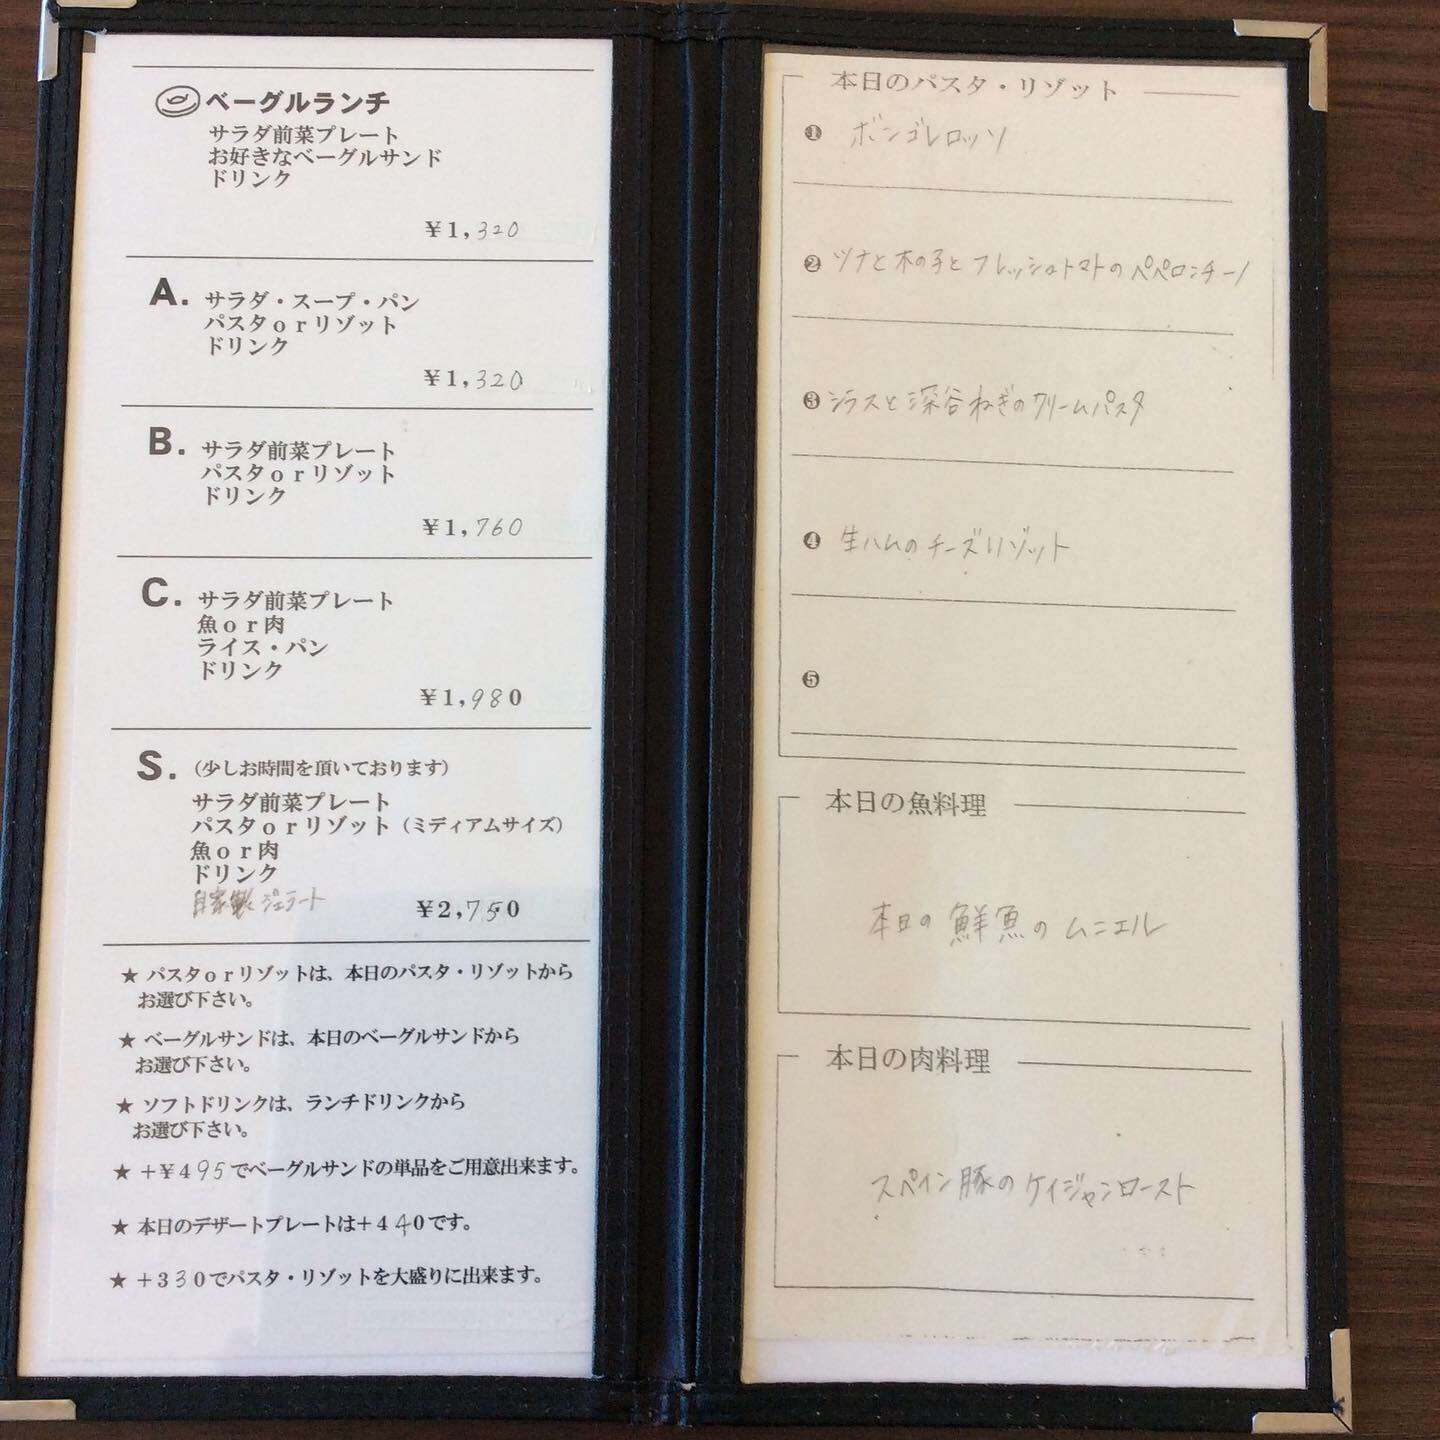 ベーグルランチ
サラダ前菜プレート
お好きなベーグルサンド
ドリンク
¥1,320
A.
サラダ・スープ・パン
パスタorリゾット
ドリンク
¥1,320
B.
サラダ前菜プレート
パスタorリゾット
ドリンク
¥1,760
C.
サラダ前菜プレート
魚or肉
ライス・パン
ドリンク
¥1,980
S. (少しお時間を頂いております)
サラダ前菜プレート
パスタorリゾット (ミディアムサイズ)
魚or肉
ドリンク
自家製ジェラート
¥2,750
★ パスタorリゾットは、本日のパスタ・リゾットから
お選び下さい。
★ ベーグルサンドは、本日のベーグルサンドから
お選び下さい。
★ ソフトドリンクは、ランチドリンクから
お選び下さい。
★ +¥495でベーグルサンドの単品をご用意出来ます。
★ 本日のデザートプレートは+440です。
★ +330でパスタ・リゾットを大盛りに出来ます。
本日のパスタ・リゾット
❶ ボンゴレロッソ
❷ ツナと木の子とフレッシュトマトのペペロンチーノ
❸ シラスと深谷ねぎのクリームパスタ
❹ 生ハムのチーズリゾット
❺
本日の魚料理
本日の鮮魚のムニエル
本日の肉料理
スペイン豚のケイジャンロースト